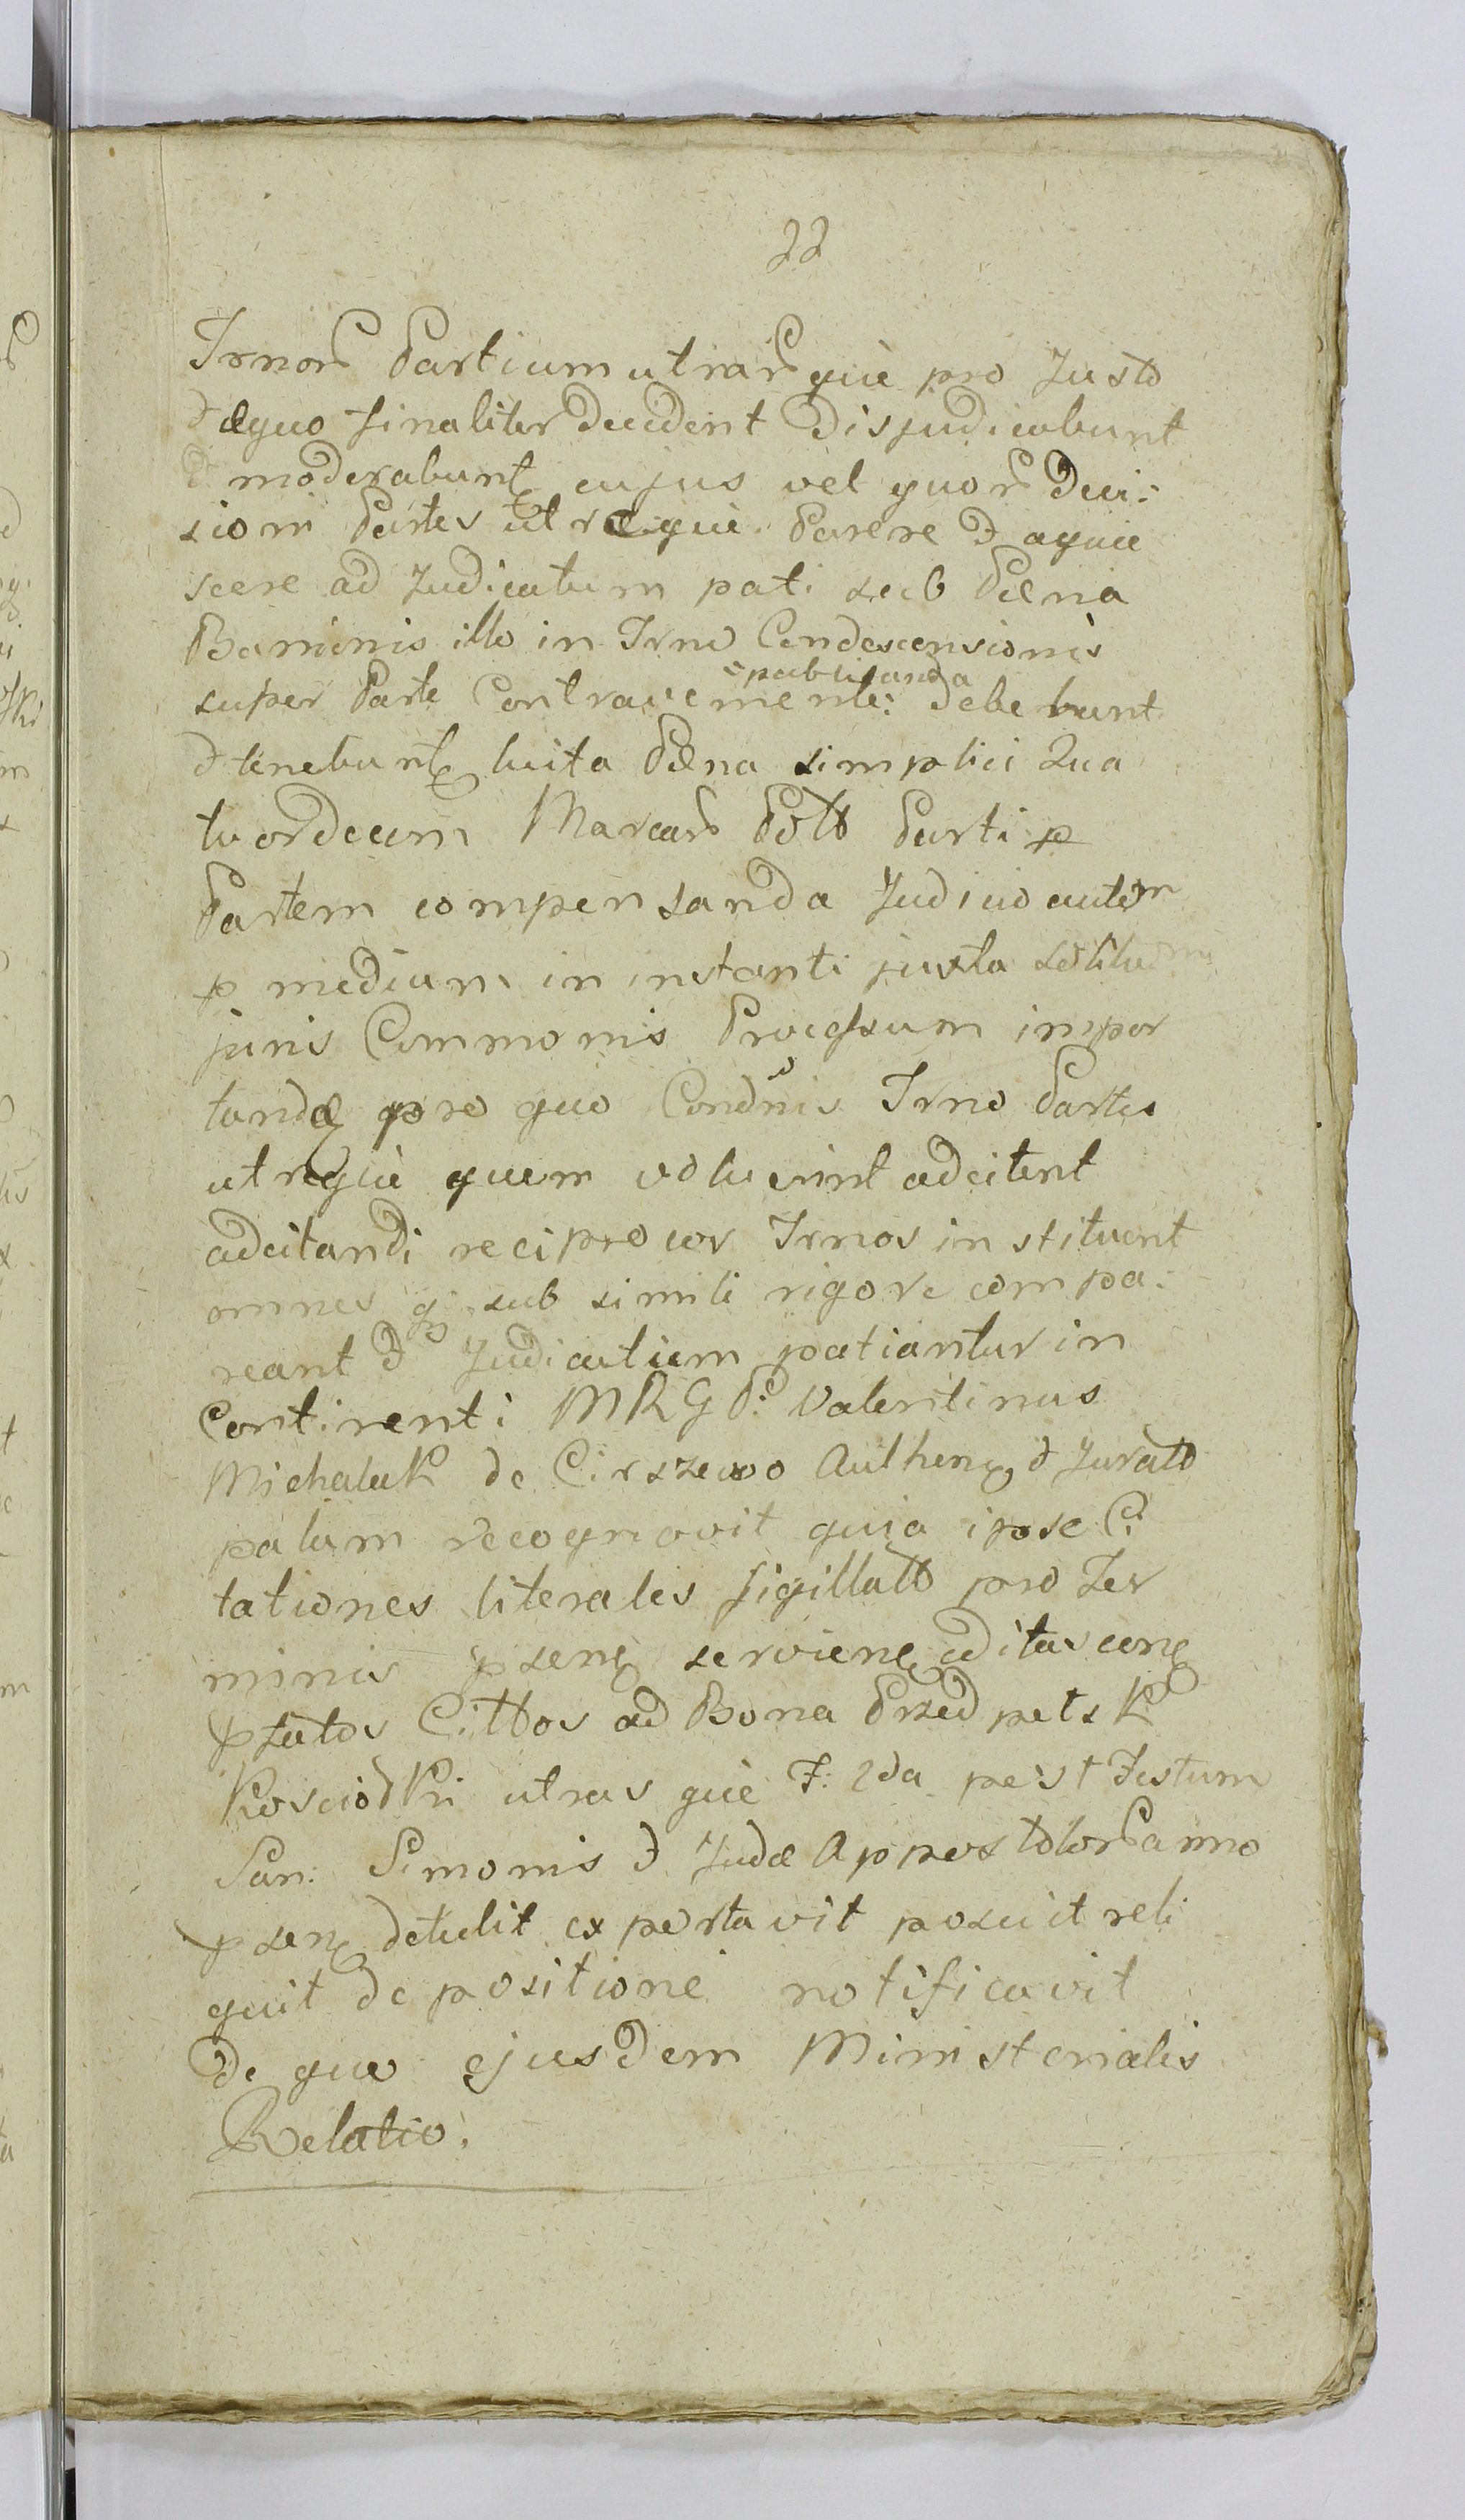 22
Trnor Partium utrarquè pro Justo
& æquo finaliter Decident Disjudicabunt
& moderabunt cujus vel quor Deci:
sioni Partes utræquè Parere & acquie
scere ad Judicatum pati sub Pæna
Bannionis illo in Trno Condescensionis
super Parte Contraveniente: publicanda Debebunt
& tenebunt luita Pæna simplici Qua
tuordecem Marcar Poll Parti p
Partem compensanda Judicio autem
p medium in instanti juxta
juris Commonis Processum impor
tandæ pro quo Condnis Trno Partes
utræquè quem voluerint adcitent
adcitandi reciprocos Trnos instituent
omnes q sub simili rigore compa:
reant & Judicatum patiantur in
Continenti MRGP: Valentinus
Michalak de Cirszewo Authen & Juratt
palam recognovit quia ipse Ci
tationes literales sigillatt pro Ter
minis psen servien editas con
pfatos Cittos ad Bona Przedpelsk
Kosciolki utrasquè F: 2da post Festum
San: Simonis & Judæ Appostolor anno
psen detulit exportavit posuit reli
quit de positione notificavit
De quo ejusdem Ministerialis
Relatio.